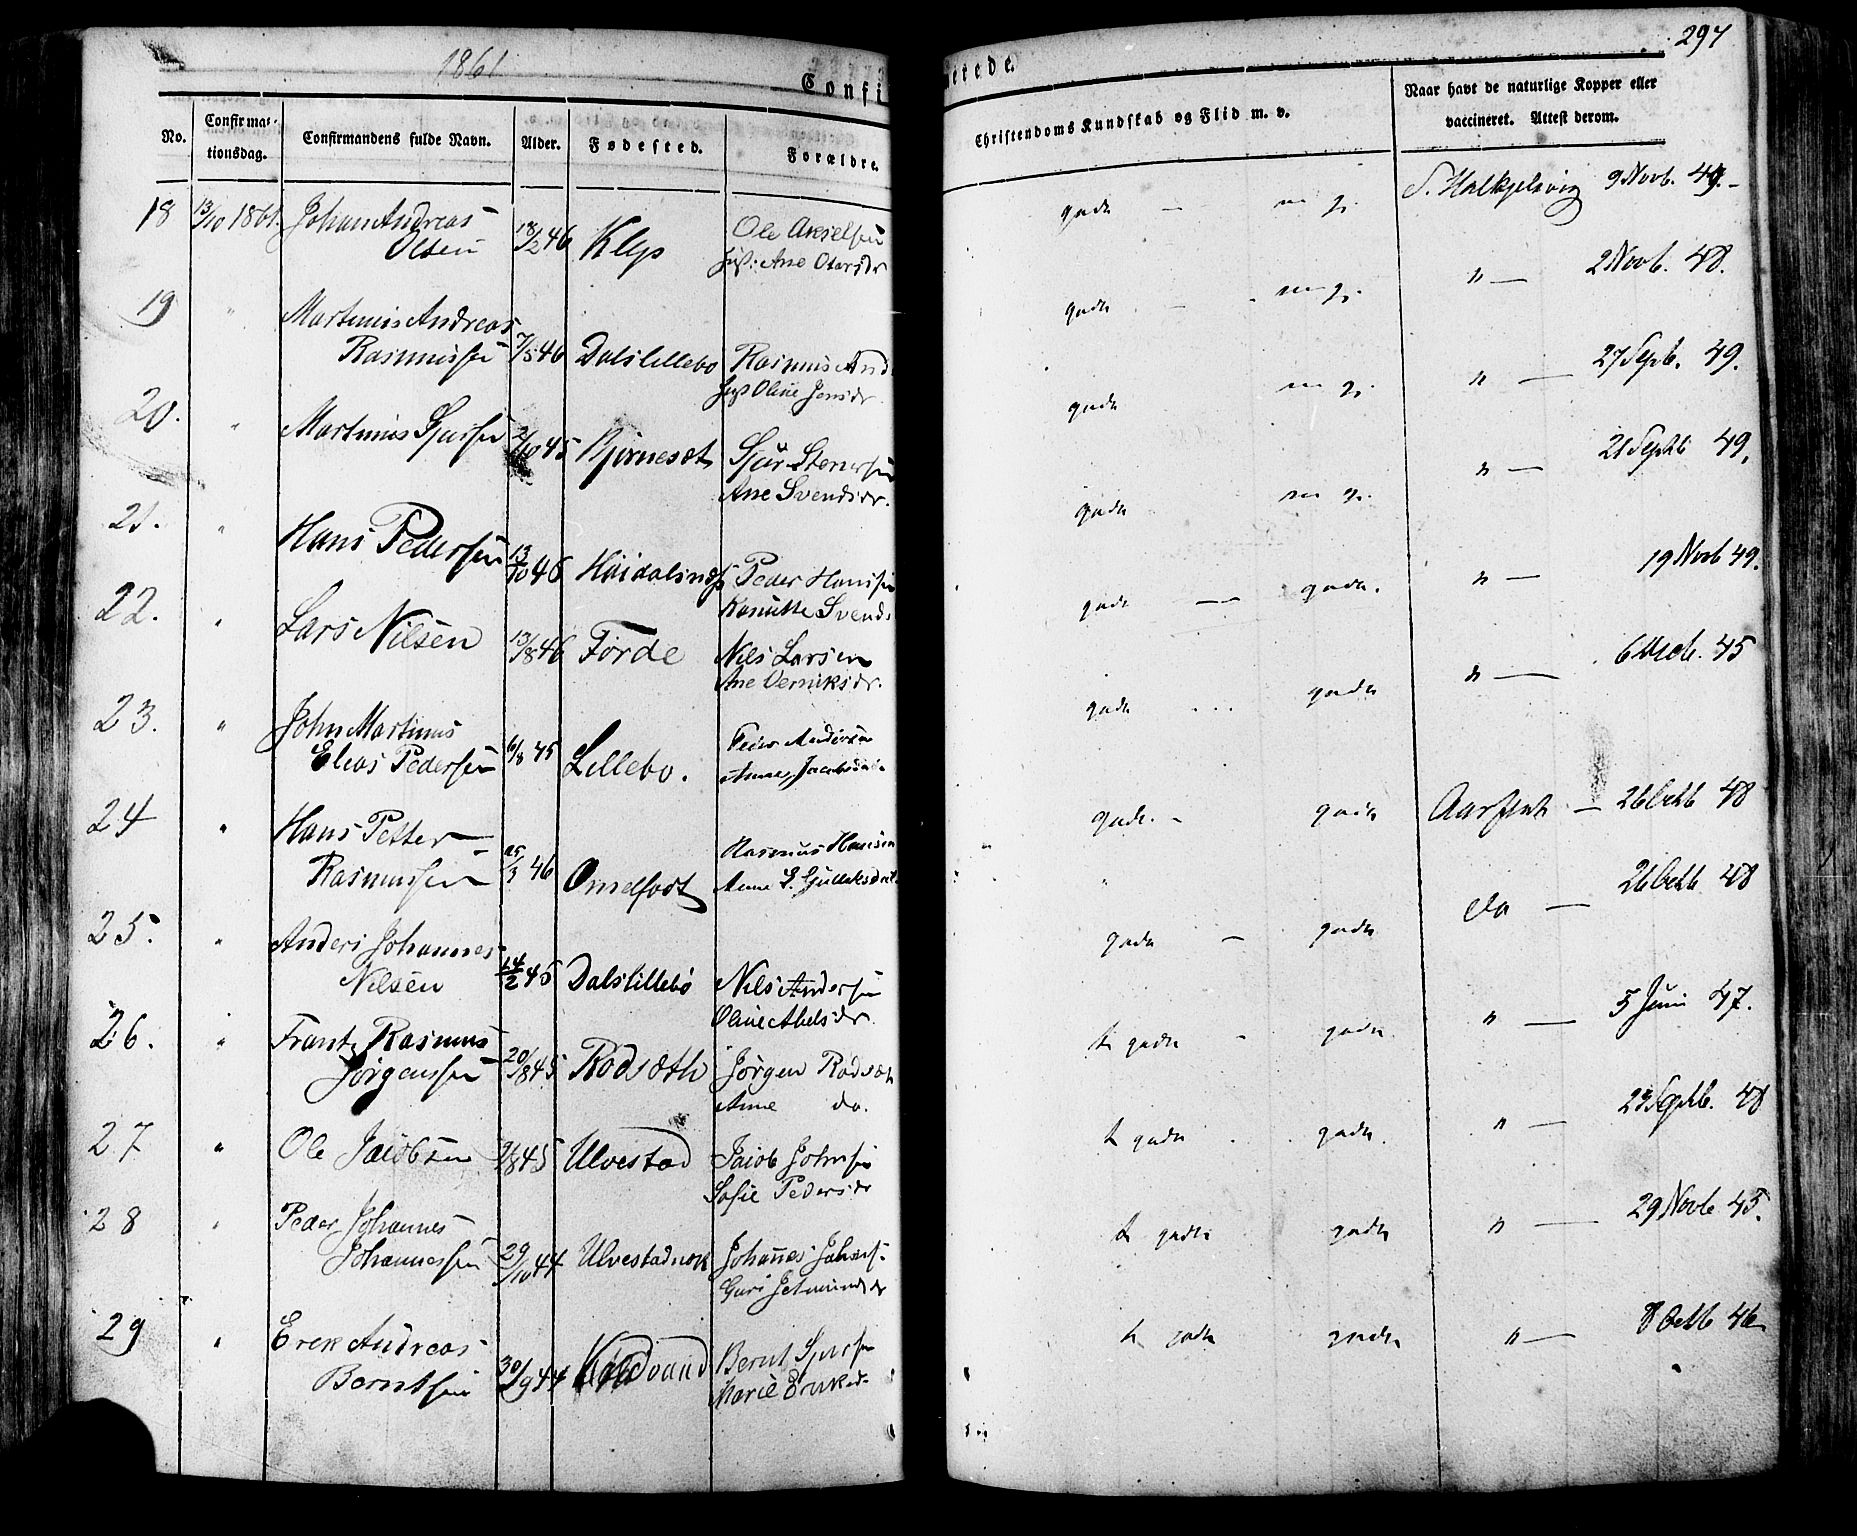 1861
Confi
erede.
297
No.
Confirma-
tionsdag.
Confirmandens fulde Navn.
Alder.
Fødested.
Forældre.
Christendoms Kundskab og Flid m. v.
Naar havt de naturlige Kopper eller
vaccineret. Attest derom.
18 13/10 1861. Johan Andreas
Olsen 18/2 46 Klep
Ole Akselsen
Ane
godt — m g. 9 Novb. 49.
19 " Martinus Andreas
Rasmussen 7/5 46 Dalslillebo Rasmus And
Oline Jensdr.
godt - m g. " — 2 Novb. 48.
20. " Martinus Sjursen 2/10 45 Bjørneset Sjur Stenersen
Ane Svendsdr.
godt m g. " — 27 Septb. 49.
21. " Hans Pedersen 13/10 46 Peder Hansen
Svends
godt m g. " — 21 Septb 49,
22. " Lars Nilsen 13/8 46 Förde Nils Larsen
Ane
godt — godt. " — 19 Novb 49.
23. " John Martinus
Elias Pedersen 6/8 45 Lillebo.
Jacobsdatr
godt godt " — 6 Decb. 45
24 " Hans Petter
Rasmussen 25/3 46 Rasmus Hansen
Anne
godt. - godt — 26 Octb 48
25. " Anders Johannes
Nilsen 14/2 45 Dalslillebö Nils Andersen
Oline Abelsdr.
godt — godt do — 26 Octb 48
26. " Frantz Rasmus
Jörgensen 20/8 45 Rodsæth Jörgen Rodsæt
Anne do.
t godt - godt " — 5 Juni 47.
27 " Ole Jacobsen Ulvestad Jacob Johnsen
Sofie Pedersdr
t godt godt. " — 48
28 " Peder Johannes
Johannessen 29/10 44 Ulvestadnok Johannes Johans.
Guri Jetmundsdr
t godt godt " — 29 Novb 45.
29 " Erek Andreas
Berntsen 30/9 44 Bernt Sjursen
Marie
t godt godt " — 8 Octb 46